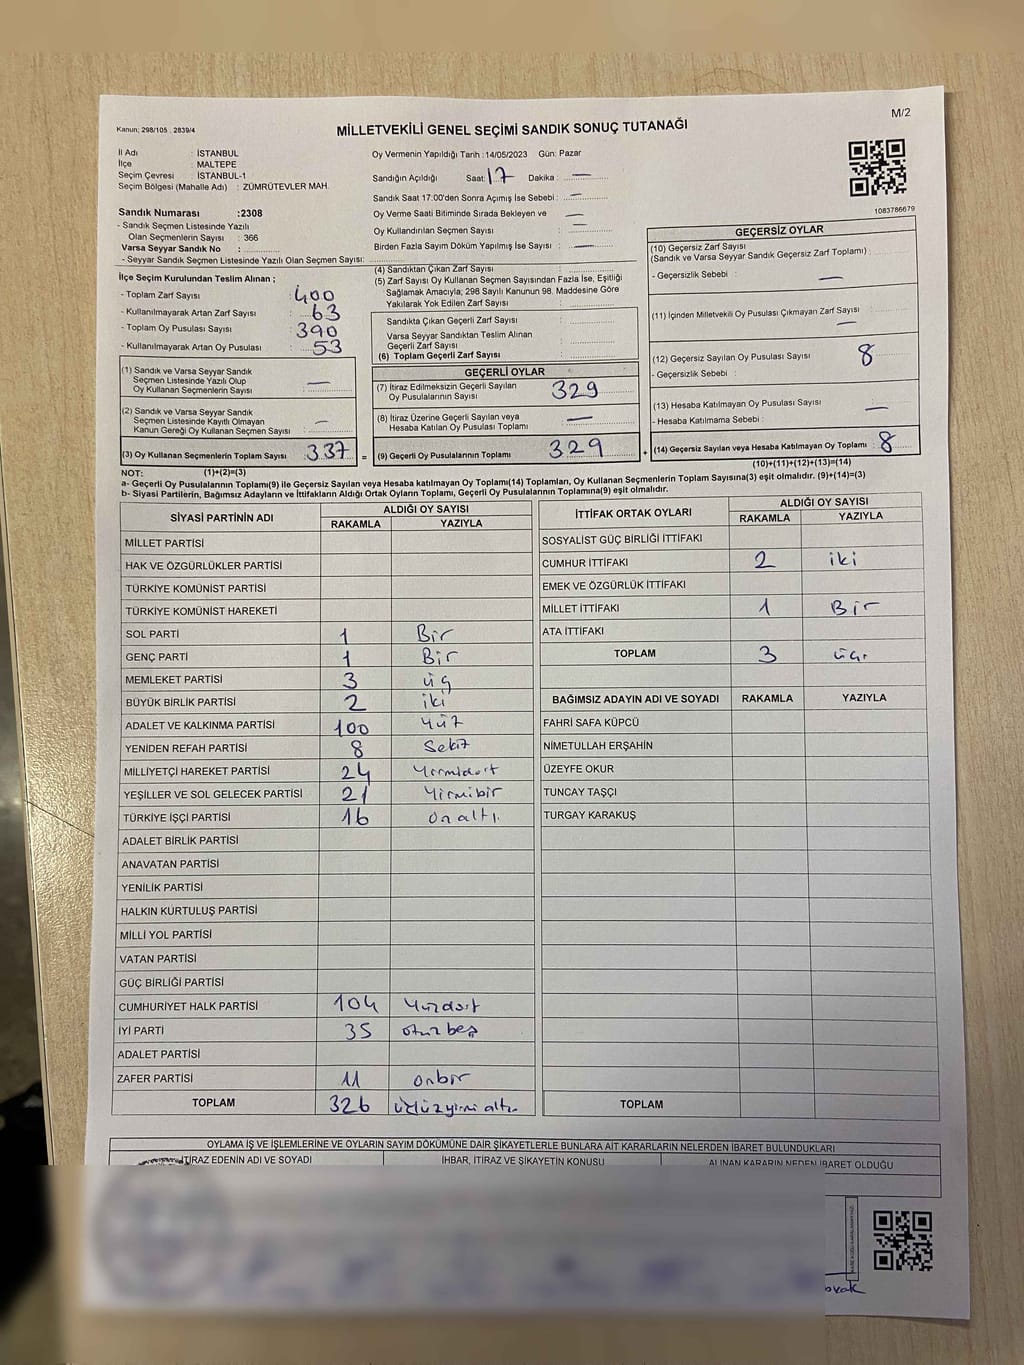 M/2
Kanun; 298/105 . 2839/4
MİLLETVEKİLİ GENEL SEÇİMİ SANDIK SONUÇ TUTANAĞI
İl Adı : İSTANBUL
İlçe : MALTEPE
Seçim Çevresi : İSTANBUL-1
Seçim Bölgesi (Mahalle Adı) : ZÜMRÜTEVLER MAH.
Sandık Numarası :2308
- Sandık Seçmen Listesinde Yazılı
Olan Seçmenlerin Sayısı : 366
Varsa Seyyar Sandık No :
- Seyyar Sandık Seçmen Listesinde Yazılı Olan Seçmen Sayısı:
Oy Vermenin Yapıldığı Tarih :14/05/2023 Gün: Pazar
Sandığın Açıldığı Saat: 17 Dakika : —
Sandık Saat 17:00'den Sonra Açımış İse Sebebi : —
Oy Verme Saati Bitiminde Sırada Bekleyen ve —
Oy Kullandırılan Seçmen Sayısı : —
Birden Fazla Sayım Döküm Yapılmış İse Sayısı : —
1083786679
İlçe Seçim Kurulundan Teslim Alınan ;
- Toplam Zarf Sayısı : 400
- Kullanılmayarak Artan Zarf Sayısı : 63
- Toplam Oy Pusulası Sayısı : 390
- Kullanılmayarak Artan Oy Pusulası : 53
(1) Sandık ve Varsa Seyyar Sandık
Seçmen Listesinde Yazılı Olup
Oy Kullanan Seçmenlerin Sayısı : —
(2) Sandık ve Varsa Seyyar Sandık
Seçmen Listesinde Kayıtlı Olmayan
Kanun Gereği Oy Kullanan Seçmen Sayısı : —
(3) Oy Kullanan Seçmenlerin Toplam Sayısı : 337 =
(4) Sandıktan Çıkan Zarf Sayısı :
(5) Zarf Sayısı Oy Kullanan Seçmen Sayısından Fazla İse, Eşitliği
Sağlamak Amacıyla; 298 Sayılı Kanunun 98. Maddesine Göre
Yakılarak Yok Edilen Zarf Sayısı :
Sandıkta Çıkan Geçerli Zarf Sayısı :
Varsa Seyyar Sandıktan Teslim Alınan
Geçerli Zarf Sayısı :
(6) Toplam Geçerli Zarf Sayısı :
GEÇERLİ OYLAR
(7) İtiraz Edilmeksizin Geçerli Sayılan
Oy Pusulalarının Sayısı : 329
(8) İtiraz Üzerine Geçerli Sayılan veya
Hesaba Katılan Oy Pusulası Toplamı : —
(9) Geçerli Oy Pusulalarının Toplamı : 329 +
GEÇERSİZ OYLAR
(10) Geçersiz Zarf Sayısı
(Sandık ve Varsa Seyyar Sandık Geçersiz Zarf Toplamı) :
- Geçersizlik Sebebi : —
(11) İçinden Milletvekili Oy Pusulası Çıkmayan Zarf Sayısı : —
(12) Geçersiz Sayılan Oy Pusulası Sayısı : 8
- Geçersizlik Sebebi :
(13) Hesaba Katılmayan Oy Pusulası Sayısı : —
- Hesaba Katılmama Sebebi :
(14) Geçersiz Sayılan veya Hesaba Katılmayan Oy Toplamı : 8
NOT: (1)+(2)=(3)
(10)+(11)+(12)+(13)=(14)
a- Geçerli Oy Pusulalarının Toplamı(9) ile Geçersiz Sayılan veya Hesaba katılmayan Oy Toplamı(14) Toplamları, Oy Kullanan Seçmenlerin Toplam Sayısına(3) eşit olmalıdır. (9)+(14)=(3)
b- Siyasi Partilerin, Bağımsız Adayların ve İttifakların Aldığı Ortak Oyların Toplamı, Geçerli Oy Pusulalarının Toplamına(9) eşit olmalıdır.
SİYASİ PARTİNİN ADI ALDIĞI OY SAYISI
RAKAMLA YAZIYLA
MİLLET PARTİSİ
HAK VE ÖZGÜRLÜKLER PARTİSİ
TÜRKİYE KOMÜNİST PARTİSİ
TÜRKİYE KOMÜNİST HAREKETİ
SOL PARTİ 1 Bir
GENÇ PARTİ 1 Bir
MEMLEKET PARTİSİ 3 üç
BÜYÜK BİRLİK PARTİSİ 2 iki
ADALET VE KALKINMA PARTİSİ 100 Yüz
YENİDEN REFAH PARTİSİ 8 Sekiz
MİLLİYETÇİ HAREKET PARTİSİ 24 Yirmidört
YEŞİLLER VE SOL GELECEK PARTİSİ 21 Yirmibir
TÜRKİYE İŞÇİ PARTİSİ 16 on altı
ADALET BİRLİK PARTİSİ
ANAVATAN PARTİSİ
YENİLİK PARTİSİ
HALKIN KURTULUŞ PARTİSİ
MİLLİ YOL PARTİSİ
VATAN PARTİSİ
GÜÇ BİRLİĞİ PARTİSİ
CUMHURİYET HALK PARTİSİ 104 Yüzdört
İYİ PARTİ 35 otuz beş
ADALET PARTİSİ
ZAFER PARTİSİ 11 onbir
TOPLAM 326 üçyüzyirmi altı
İTTİFAK ORTAK OYLARI ALDIĞI OY SAYISI
RAKAMLA YAZIYLA
SOSYALİST GÜÇ BİRLİĞİ İTTİFAKI
CUMHUR İTTİFAKI 2 iki
EMEK VE ÖZGÜRLÜK İTTİFAKI
MİLLET İTTİFAKI 1 Bir
ATA İTTİFAKI
TOPLAM 3 üç
BAĞIMSIZ ADAYIN ADI VE SOYADI RAKAMLA YAZIYLA
FAHRİ SAFA KÜPCÜ
NİMETULLAH ERŞAHİN
ÜZEYFE OKUR
TUNCAY TAŞÇI
TURGAY KARAKUŞ
TOPLAM
OYLAMA İŞ VE İŞLEMLERİNE VE OYLARIN SAYIM DÖKÜMÜNE DAİR ŞİKAYETLERLE BUNLARA AİT KARARLARIN NELERDEN İBARET BULUNDUKLARI
İTİRAZ EDENİN ADI VE SOYADI İHBAR, İTİRAZ VE ŞİKAYETİN KONUSU ALINAN KARARIN NEDEN İBARET OLDUĞU